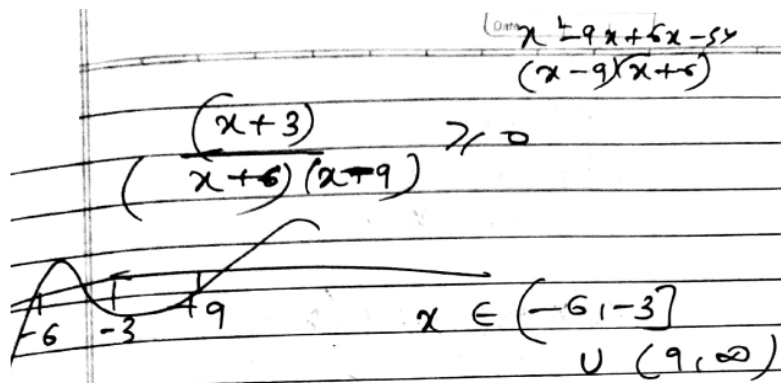 x² - 9x + 6x - 54
(x - 9)(x + 6)
(x + 3)
(x + 6) (x - 9) ≥ 0
-6 -3 +9
x ∈ (-6, -3]
∪ (9, ∞)